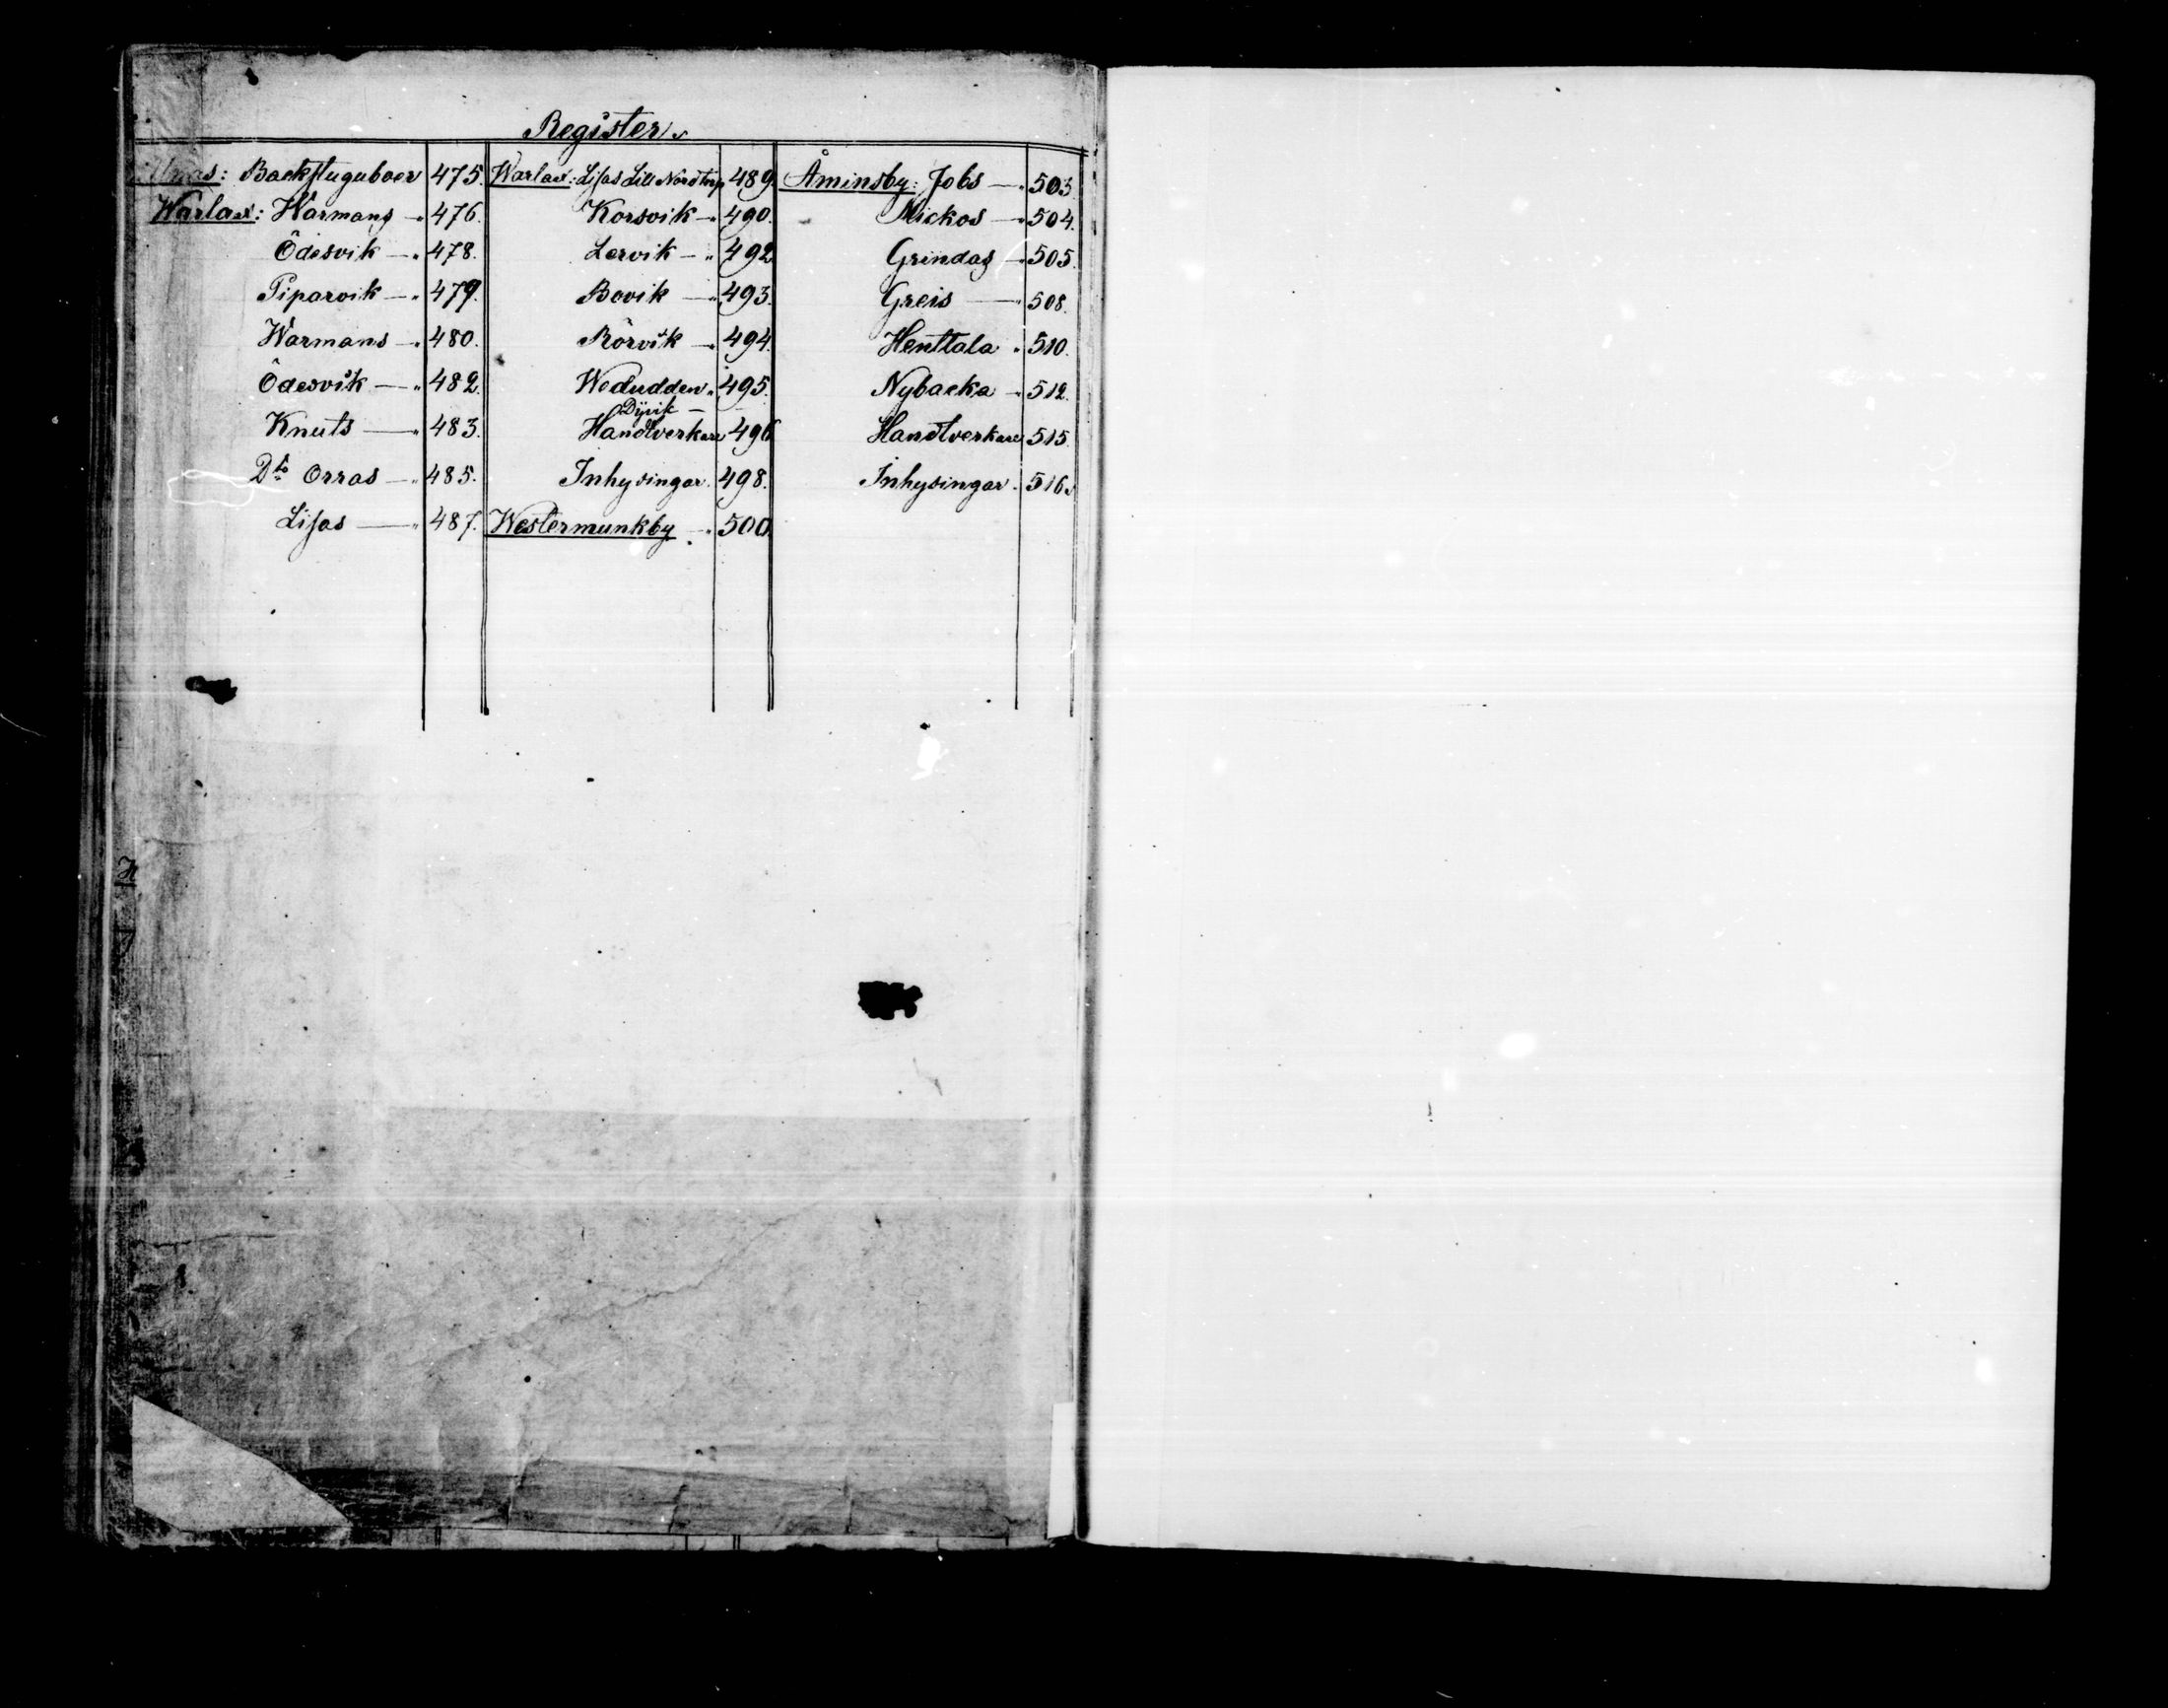 Register.
Backstuguboer 475.
Warlax: Warmans 476.
Ödesvik 478.
Piparvik 479.
Warmans 480.
Ödesvik 482.
Knuts 483.
Dto Orras 485.
Lisas 487.
Warlax: Lisas Lill Nörstrp 489.
Korsvik 490.
Lervik 492
Bovik 493.
Rörvik 494.
Wedudden 495.
Dyvik
Handtverkare 496
Inhysingar 498.
Westermunkby 500.
Åminsby: Jobs 503
Mickos 504.
Grindas 505.
Greis 508.
Henttala 510.
Nybacka 512.
Handtverkare 515.
Inhysingar 516.